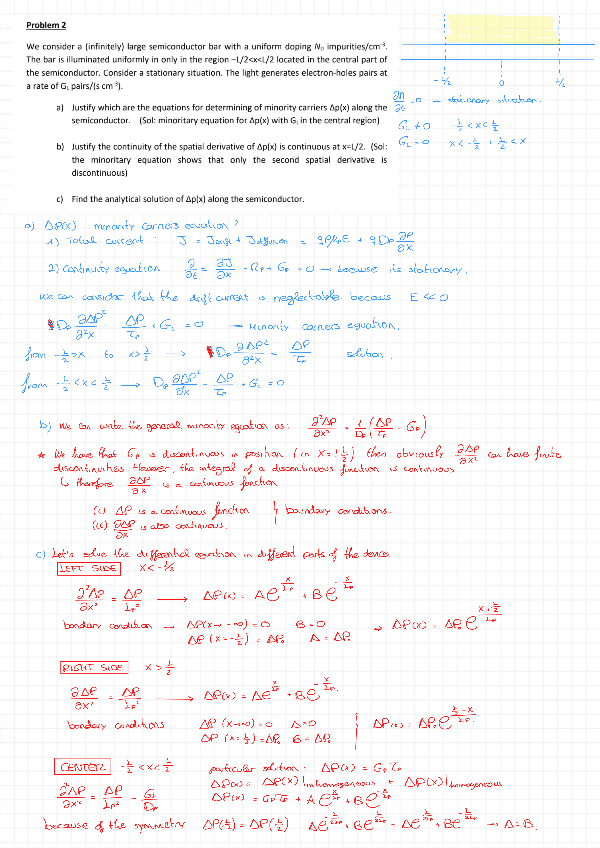 Problem 2
We consider a (infinitely) large semiconductor bar with a uniform doping N_D impurities/cm⁻³.
The bar is illuminated uniformly in only in the region –L/2<x<L/2 located in the central part of
the semiconductor. Consider a stationary situation. The light generates electron-holes pairs at
a rate of G_L pairs/(s cm⁻³).
-L/2 0 L/2
∂n/∂t = 0 → stationary situation.
G_L ≠ 0 -L/2 < x < L/2
G_L = 0 x < -L/2 , L/2 < x
a) Justify which are the equations for determining of minority carriers Δp(x) along the
semiconductor. (Sol: minoritary equation for Δp(x) with G_L in the central region)
b) Justify the continuity of the spatial derivative of Δp(x) is continuous at x=L/2. (Sol:
the minoritary equation shows that only the second spatial derivative is
discontinuous)
c) Find the analytical solution of Δp(x) along the semiconductor.
a) ΔP(x) minority carriers equation?
1) Total current: J = Jdrift + Jdiffusion = qPμpE + qDp ∂P/∂x
2) Continuity equation ∂/∂t = ∂J/∂x - Rp + Gp = 0 → because its stationary.
We can consider that the drift current is neglectable becaus E << 0
Dp ∂ΔP²/∂²x - ΔP/τp + G_L = 0 → Minority carriers equation.
from -L/2 > x to x > L/2 → Dp ∂ΔP²/∂²x - ΔP/τp solution.
from -L/2 < x < L/2 → Dp ∂ΔP²/∂x - ΔP/τp + G_L = 0
b) We can write the general minority equation as: ∂²ΔP/∂x² = 1/Dp (ΔP/τp - Gp)
* We have that Gp is discontinuous in position (in x = ± L/2) then obviously ∂²ΔP/∂x² can have finite
discontinuities. However, the integral of a discontinuous function is continuous
↳ therefore ∂ΔP/∂x is a continuous function
(i) ΔP is a continuous function } boundary conditions.
(ii) ∂ΔP/∂x is also continuous.
c) Let's solve the differential equation in different parts of the device.
LEFT SIDE x < -L/2
∂²ΔP/∂x² = ΔP/Lp² → ΔP(x) = A e^(x/Lp) + B e^(-x/Lp)
bondary condition → ΔP(x→-∞) = 0 B = 0
ΔP(x = -L/2) = ΔP₀ A = ΔP₀ ⇒ ΔP(x) = ΔP₀ e^((x+L/2)/Lp)
RIGHT SIDE x > L/2
∂ΔP/∂x² = ΔP/Lp² → ΔP(x) = A e^(x/Lp) + B e^(-x/Lp)
boundary conditions ΔP(x→∞) = 0 A = 0
ΔP(x = L/2) = ΔP₀ B = ΔP₀ ΔP(x) = ΔP₀ e^((L/2-x)/Lp)
CENTER -L/2 < x < L/2 particular solution: ΔP(x) = Gp τp
ΔP(x) = ΔP(x)|inhomogeneous + ΔP(x)|homogeneous
∂²ΔP/∂x² = ΔP/Lp² - G_L/Dp ΔP(x) = Gp τp + A e^(x/Lp) + B e^(-x/Lp)
because of the symmetry ΔP(L/2) = ΔP(L/2) A e^(-L/2Lp) + B e^(L/2Lp) = A e^(L/2Lp) + B e^(-L/2Lp) → A = B.